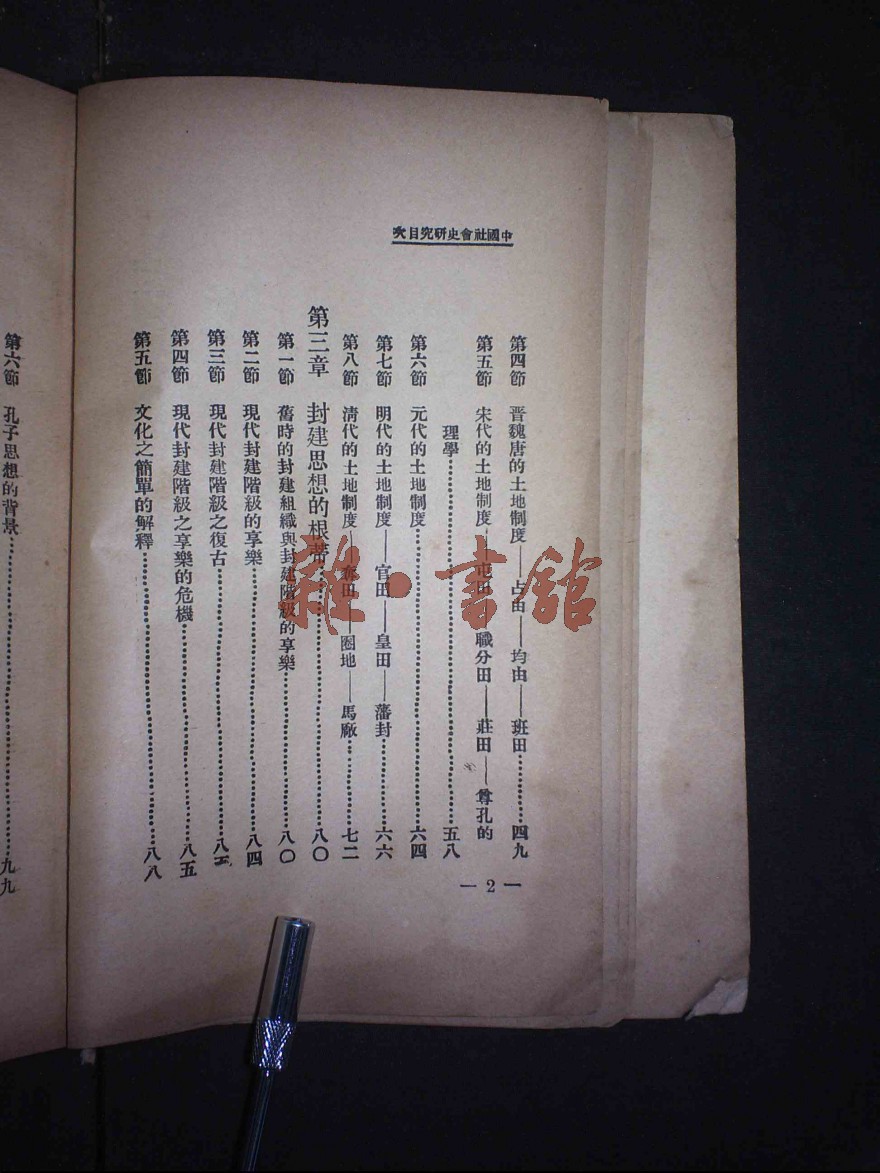 中國社會史研究目次
第四節 晋魏唐的土地制度——占由——均由——班田…………四九
第五節 宋代的土地制度——屯田——職分田——莊田——尊孔的
理學…………五八
第六節 元代的土地制度…………六四
第七節 明代的土地制度——官田——皇田——藩封…………六六
第八節 清代的土地制度——田——圈地——馬廠…………七二
第三章 封建思想的根蒂…………八〇
第一節 舊時的封建組織與封建階級的享樂…………八〇
第二節 現代封建階級的享樂…………八四
第三節 現代封建階級之復古…………八五
第四節 現代封建階級之享樂的危機…………八五
第五節 文化之簡單的解釋…………八八
— 2 —
第六節 孔子思想的背景…………九九
雜·書館